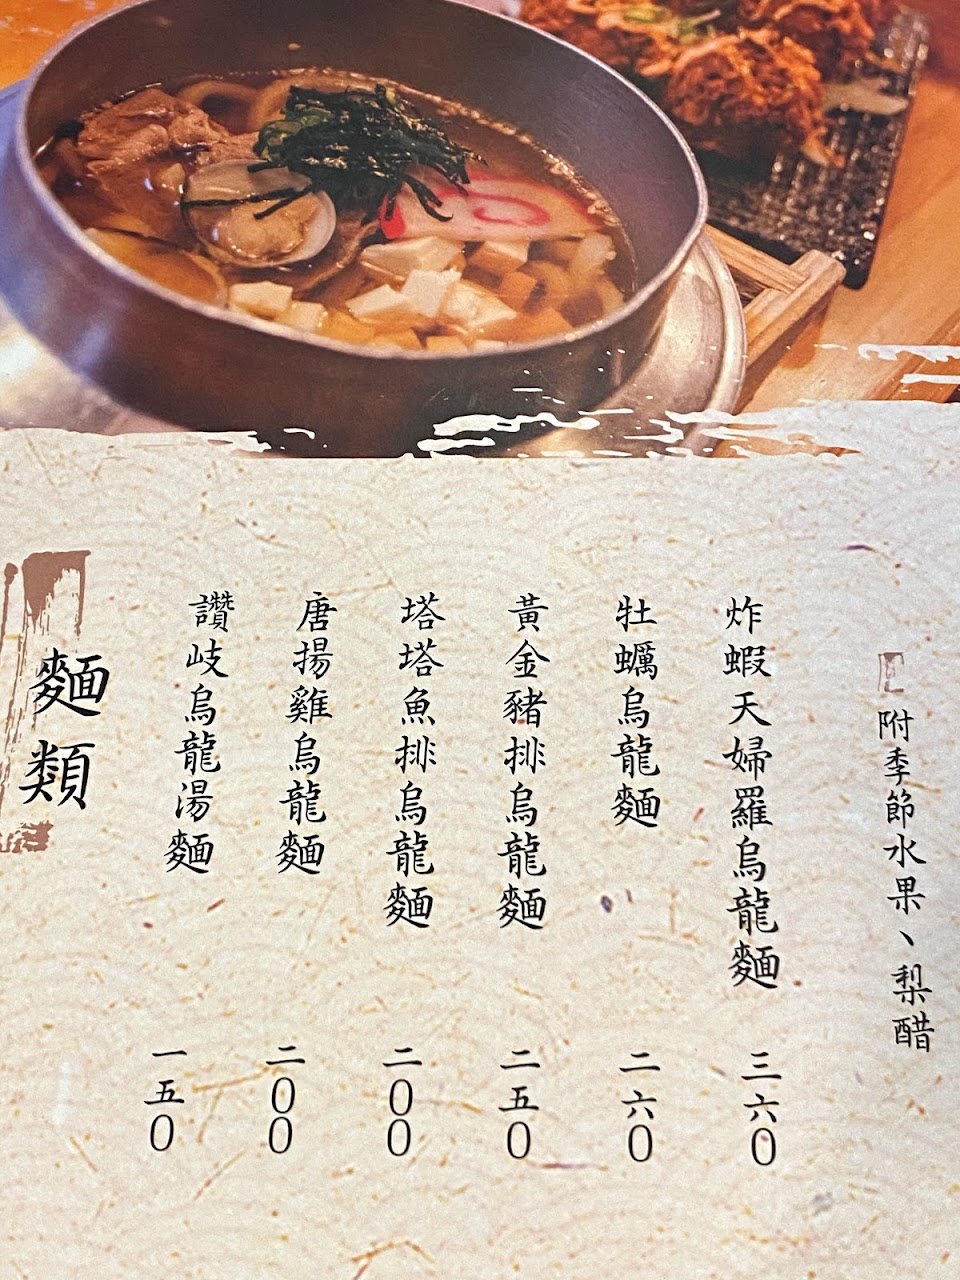 附季節水果、梨醋
炸蝦天婦羅烏龍麵 三六０
牡蠣烏龍麵 二六０
黃金豬排烏龍麵 二五０
塔塔魚排烏龍麵 二００
唐揚雞烏龍麵 二００
讚岐烏龍湯麵 一五０
麵類